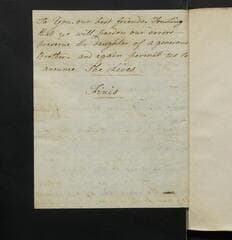 To You our best friends. Trusting
that ye will pardon our errors
preserve the daughter of a generous
Brother and again permit us to
announce She Lives
Finis